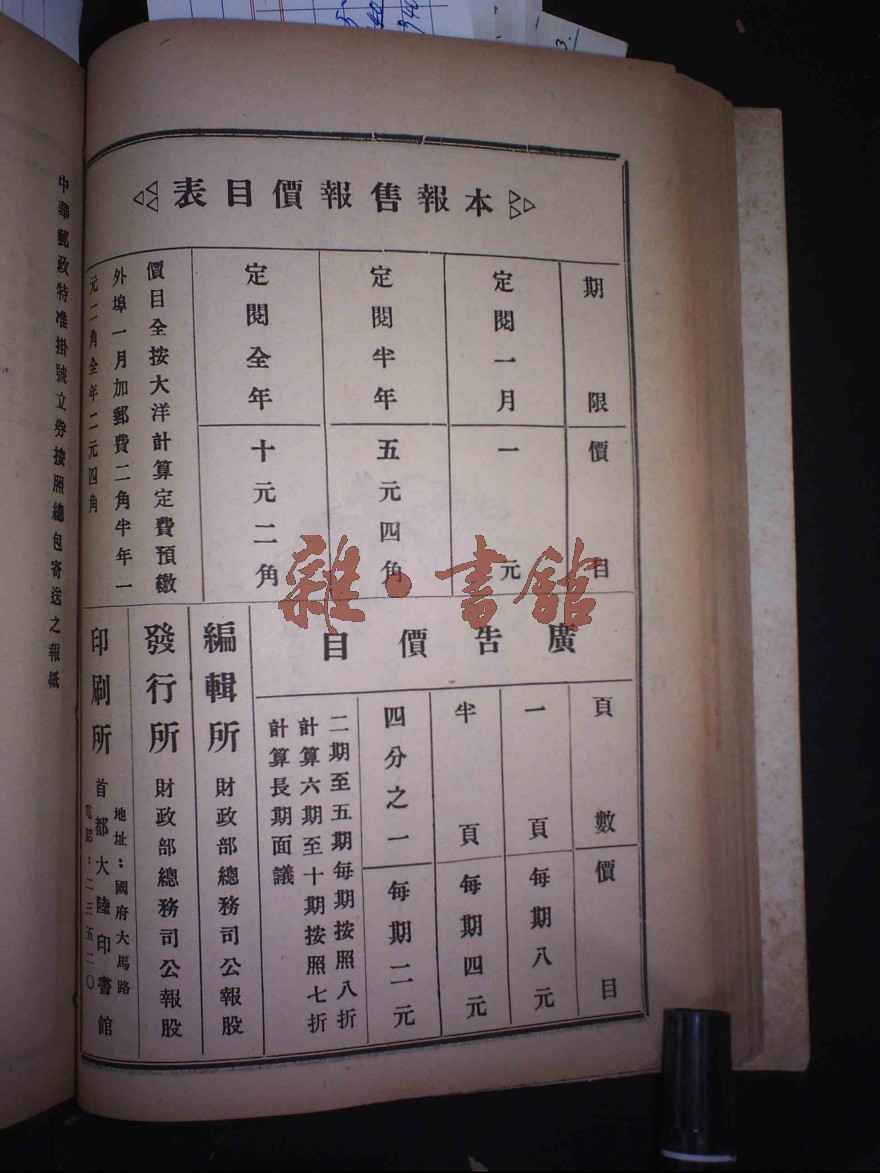 本報售報價目表
期限 價目
定閱一月 一元
定閱半年 五元四角
定閱全年 十元二角
價目全按大洋計算定費預繳
外埠一月加郵費二角半年一
元二角全年二元四角
廣告價目
頁數 價目
一頁 每期八元
半頁 每期四元
四分之一 每期二元
二期至五期每期按照八折
計算六期至十期按照七折
計算長期面議
編輯所 財政部總務司公報股
發行所 財政部總務司公報股
印刷所 首都大陸印書館
地址：國府大馬路
電話：二三五二〇
中華郵政特准掛號立券按照總包寄送之報紙
雜·書館